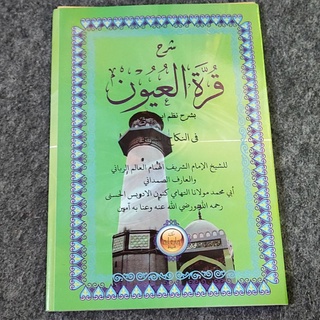 شرح
قُرَّةُ العُيُونِ
بشرح نظم
فى النكاح
للشيخ الإمام الشريف الهمام العالم الربانى
والعارف الصمدانى
أبي محمد مولانا التهامى كنون الادريسى الحسنى
رحمه الله ورضي الله عنه وعنا به آمين